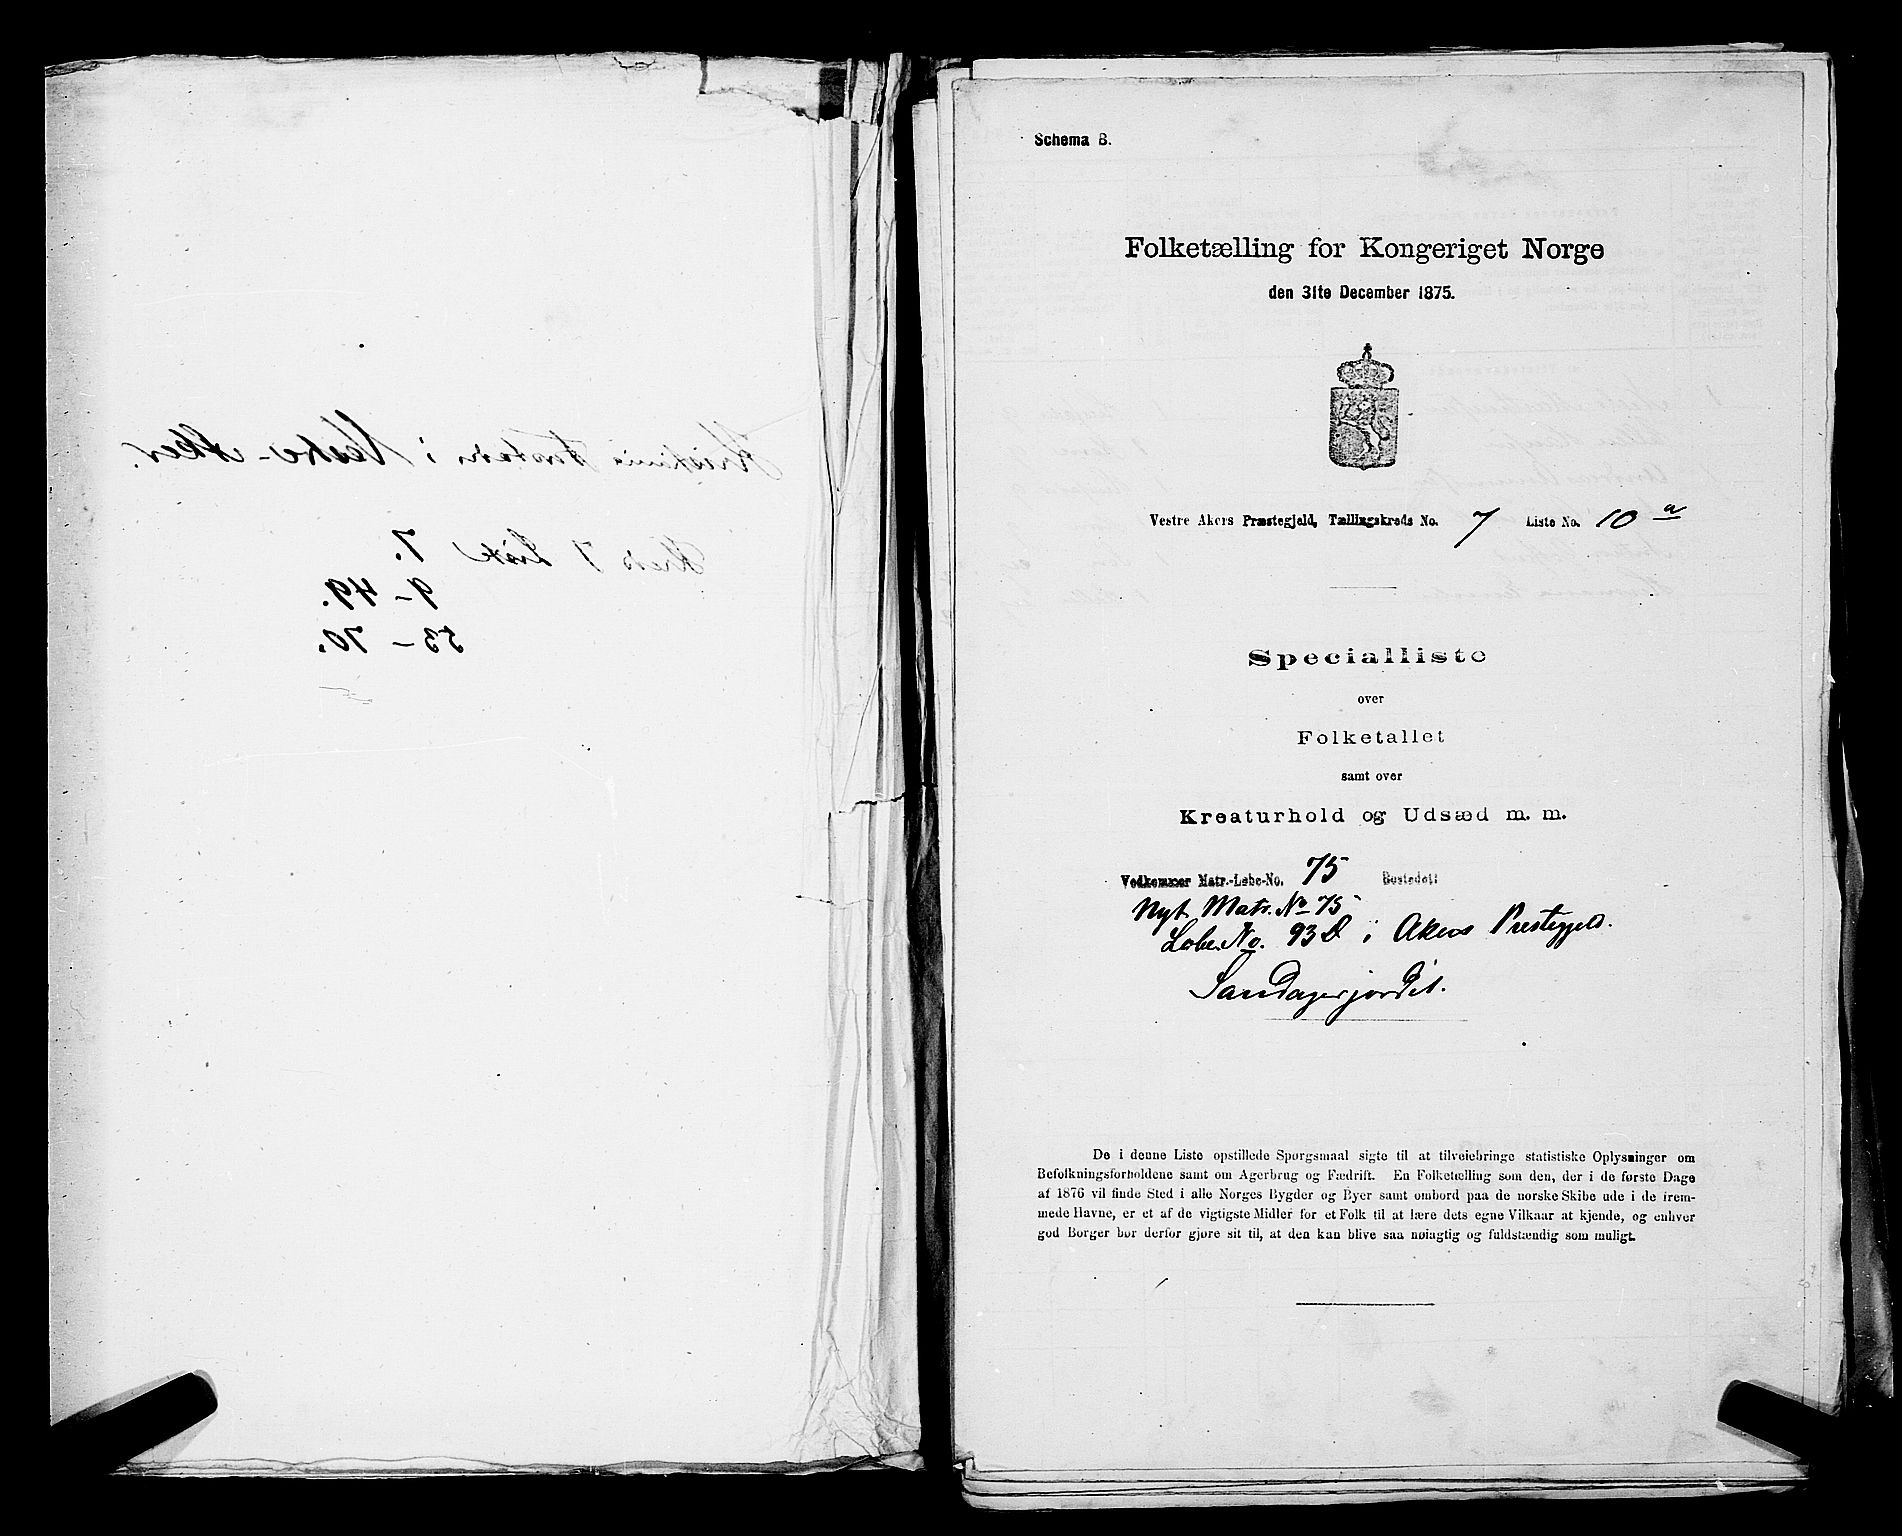 Kristiania Forstæder i Vestre-Aker.
Kreds 7 Liste 7.
9 - 49.
53 - 70.
Schema B.
Folketælling for Kongeriget Norge
den 31te December 1875.
Vestre Akers Præstegjeld, Tællingskreds No. 7 Liste No. 10 a
Specialliste
over
Folketallet
samt over
Kreaturhold og Udsæd m. m.
Vedkommer Matr.-Løbe-No. 75 Bostedet:
Nyt Matr. No 75
Løbe No. 93D i Akers Prestegjeld.
Sandagerjordet.
De i denne Liste opstillede Spørgsmaal sigte til at tilveiebringe statistiske Oplysninger om
Befolkningsforholdene samt om Agerbrug og Fædrift. En Folketælling som den, der i de første Dage
af 1876 vil finde Sted i alle Norges Bygder og Byer samt ombord paa de norske Skibe ude i de frem-
mede Havne, er et af de vigtigste Midler for et Folk til at lære dets egne Vilkaar at kjende, og enhver
god Borger bør derfor gjøre sit til, at den kan blive saa nøiagtig og fuldstændig som muligt.